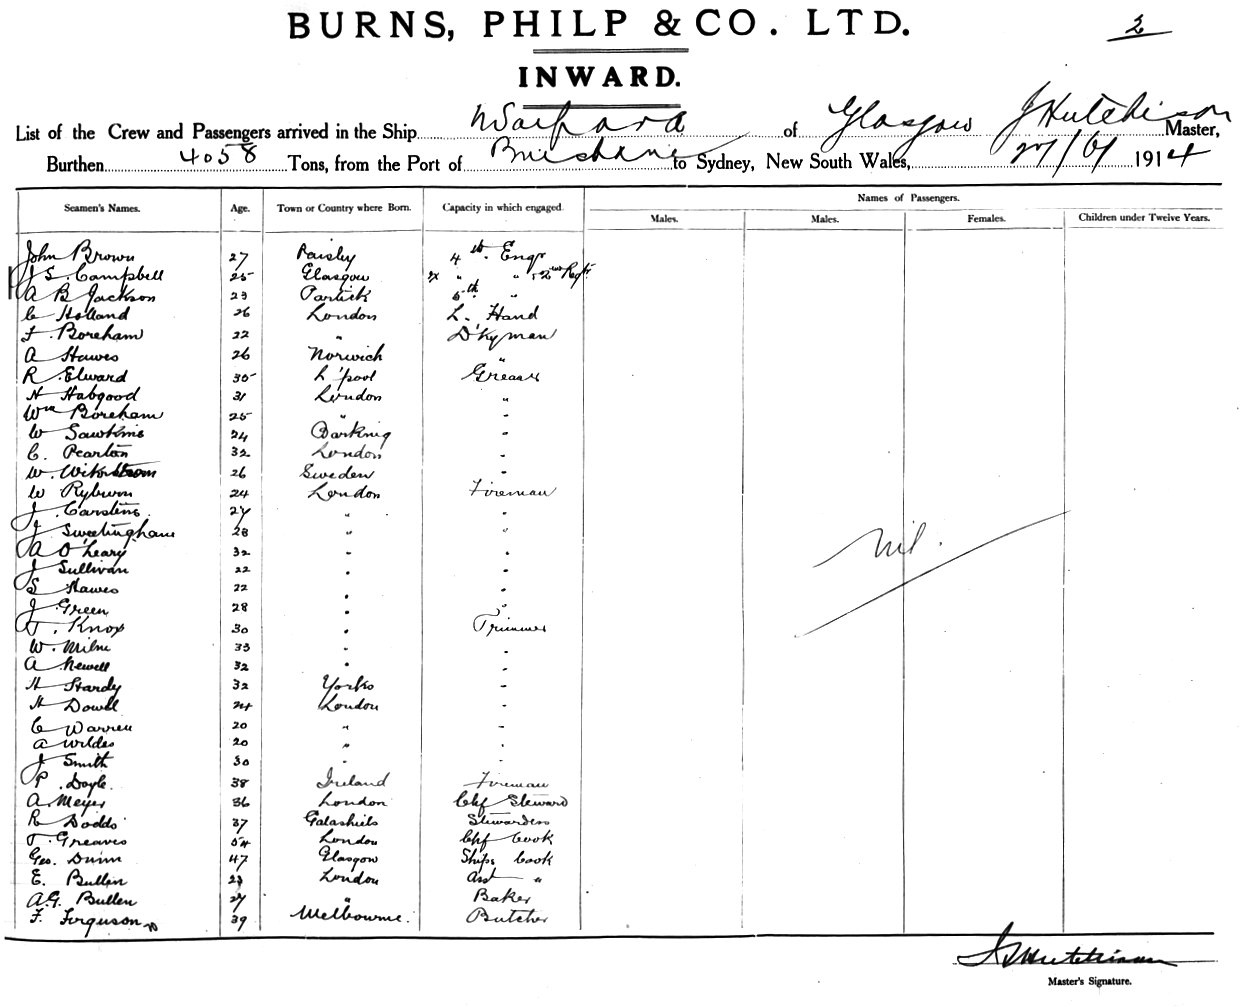 2
BURNS, PHILP & CO. LTD.
INWARD.
List of the Crew and Passengers arrived in the Ship Waipara of Glasgow J Hutchison Master,
Burthen 4058 Tons, from the Port of Brisbane to Sydney, New South Wales, 1914
Names of Passengers.
Seamen's Names. Age. Town or Country where Born. Capacity in which engaged. Males. Males. Females. Children under Twelve Years.
John Brown 27 Paisley 4th. Engr
J S. Campbell 25 Glasgow " "
A B Jackson 23 Partick 5th "
C Holland 26 London L. Hand
F. Boreham 22 " D'kyman
A Hawes 26 Norwich "
R. Elward 30 L'pool Greaser
H Habgood 31 London "
Wm Boreham 25 " "
W Sawkins 24 Barking "
C. Pearton 32 London "
W. Wikstrom 26 Sweden "
W Ryburn 24 London Fireman
J. Carstens 27 " "
J Sweetingham 28 " "
A O'Leary 32 " "
J Sullivan 22 " "
S Hawes 22 " "
J Green 28 " "
T. Knox 30 " Trimmer
W. Milne 33 " "
A Newell 32 " "
H Hardy 32 Yorks "
H Dowell 24 London "
C Warren 20 " "
A Wildes 20 " "
J Smith 30 " "
P. Doyle 38 Ireland Fireman
A. Meyer 36 London Chf Steward
R Dodds 37 Galashiels Stewardess
T. Greaves 54 London Chf Cook
Geo. Dunn 47 Glasgow Ships Cook
E. Bullen 23 London Asst "
A.G. Bullen 27 " Baker
F. Ferguson 39 Melbourne. Butcher
Nil.
J Hutchison
Master's Signature.